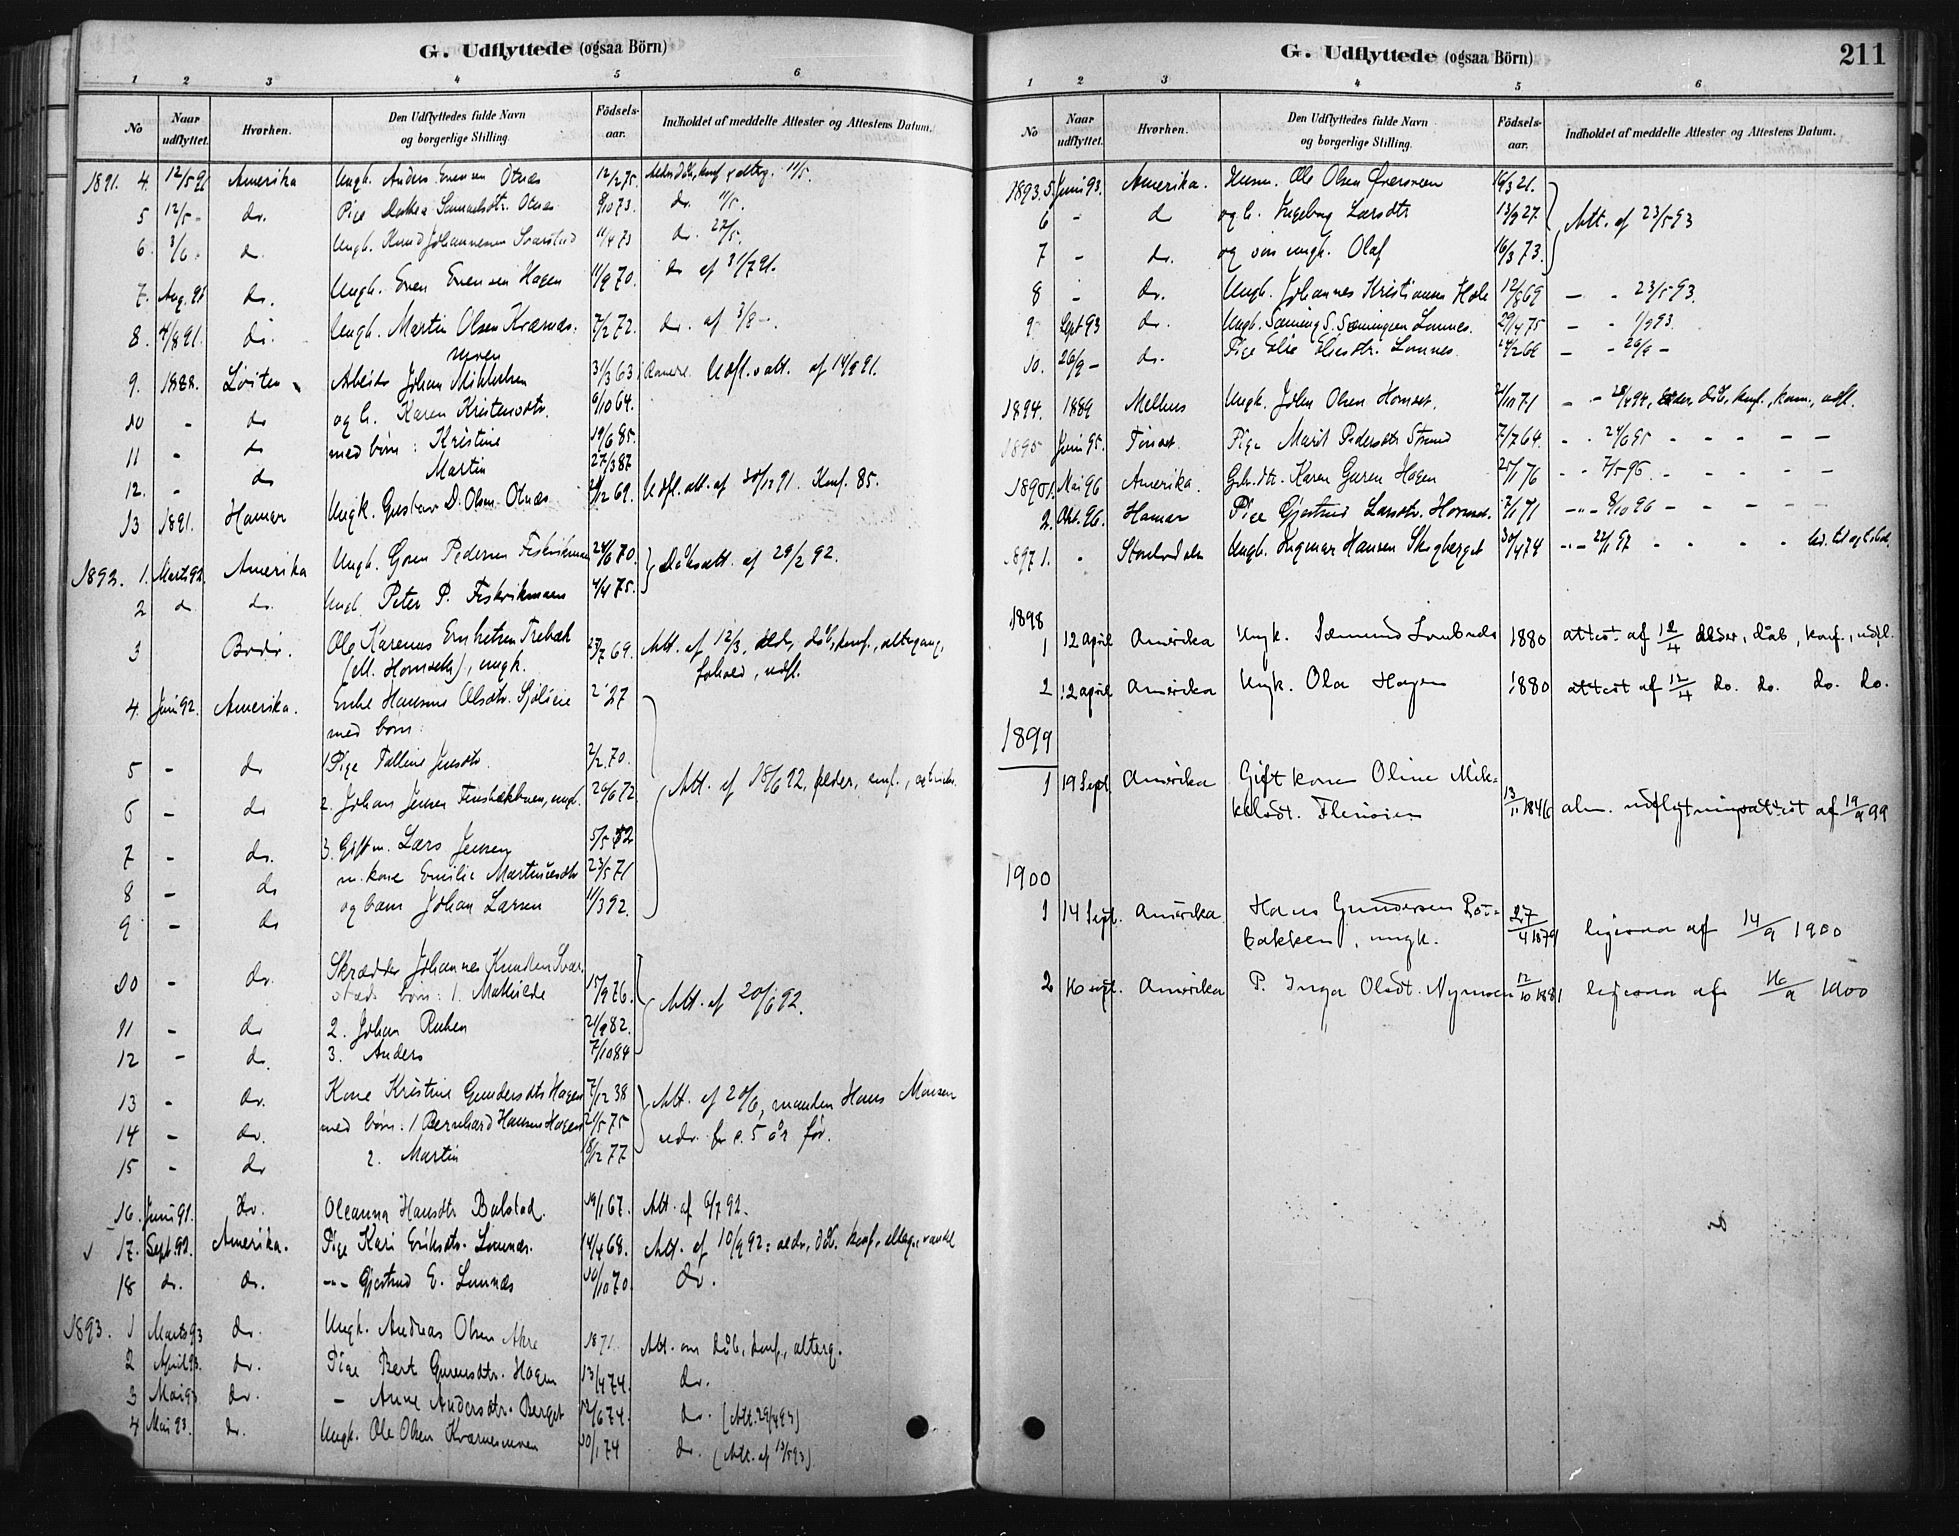 G. Udflyttede (ogsaa Börn)
1 2 3 4 5 6
No Naar udflyttet. Hvorhen. Den Udflyttedes fulde Navn og borgerlige Stilling. Födsels-aar. Indholdet af meddelte Attester og Attestens Datum.
1891. 4. 12/5 91 Amerika Ungk. Anders Otnæs 12/2 75.
5 12/5 - do. Pige Samuelsdtr. Otnæs 73. do. 11/5.
6. 3/6 - do Ungk. Knud Johannesen 11/4 73 do. 27/5.
7. Aug. 91 do. Ungk. Even Evensen Hagen 11/9 70. do af 31/7 91.
8. 4/8 91. do. Ungk. Martin Olsen Kværnes-
moen 7/2 72. do. af 3/8 -.
9. 1888. Löiten Arbeider Johan Mikkelsen 31/3 63 Udfl. att. af 14/9 91.
10 - do og h. Karen Kristensdtr. 64.
11 - do med børn: Kristine 19/6 85.
12. - do Martin 27/3 87
13 1891. Hamar Ungk. Gustav D. Olsen Otnæs 69. Udfl. att. af 30/12 91. Konf. 85.
1892. 1. Marts 92 Amerika Ungk. Pedersen Fiskvikmoen 24/6 70. Dåbsatt. af 29/2 92.
2 do do. Ungk. Peter P. Fiskvikmoen 4/4 75.
3 Bodø. Ole Karenus Trebæk
ungk. 69. Att. af 12/3, alder, dåb, konf., altergang,
forhold, udfl.
4. Juni 92. Amerika. Enke Hansine Olsdtr. Sjöliie 27
med børn:
5 - do 1 Pige Talline Jensdtr. 2/2 70.
6 - do 2. Johan Jensen ungk. 72 Att. af 18/6 92, alder, konf.,
7 - do. 3. Gift m. Lars Jensen 5/5 52
8 - do m. kone Emilie Martinusdtr 23/5 71
9 - do og barn Johan Larsen 11/3 92.
10 - do. Skrædder Johannes Knudsen Svar-
stads børn: 1. Mathilde 15/9 76.
11 - do 2. Johan Ruben 82. Att. af 20/6 92.
12 - do. 3. Anders 7/10 84
13 - do. Kone Kristine Gundersdtr Hagen 7/12 38 Att. af 20/6, manden Hans Monsen
14 - do. med børn: 1 Bernhard Hansen Hagen 21/5 75 udv. for c. 5 år før.
15 - do 2. Martin 77
16. Juni 91. do. Oleanna Hansdtr Bolstad. 19/1 67. Att. af 6/7 92.
17. Sept. 92. Amerika. Pige Kari Eriksdtr. Lomnæs. 14/4 68. Att. af 10/9 92: alder, dåb, konf., alterg., vandel
18 do. do. -"- Gjertrud E. Lomnæs 30/10 70. do.
1893. 1 Marts 93 do. Ungk. Andreas Olsen Akre 1871. Att. om dåb, konf., alterg.
2 April 93. do. Pige Berit Gurensdtr. Hagen 13/4 74. do.
3 Mai 93 do. - Anne Andersdtr. Berget 12/6 74. do. (Att. 29/4 93)
4 Mai 93. do. Ungk. Ole Olsen Kværnesmoen 30/1 74 do. (Att. af 13/5 93)
G. Udflyttede (ogsaa Börn) 211
1 2 3 4 5 6
No Naar udflyttet. Hvorhen. Den Udflyttedes fulde Navn og borgerlige Stilling. Födsels-aar. Indholdet af meddelte Attester og Attestens Datum.
1893. 5. Juni 93. Amerika. Husm. Ole Olsen 16/3 21.
6 - do og h. Ingeborg Larsdtr 13/9 27. Att. af 23/5 93
7 - do. og søn ungk. Olaf 16/3 73.
8 - do. Ungk. Johannes Kristiansen Hole 12/8 69 - - 23/5 93.
9 Sept 93 do. Ungk. Sæming S. Sæmingsen Lomnes. 29/4 75 - - 1/9 93.
10. 26/9 - do. Pige Elie Eliesdtr. Lomnes. - - 26/9 -
1894. 1889 Melhus Ungk. John Olsen Hornset. 71 alder, dåb, konf., kom., udfl.
1895 Juni 95. Pige Marit Pedersdtr Strand 7/7 64. - - 24/6 95 - - - -
1896 1. Mai 96 Amerika. Gbr.dtr. Karen Guren Hagen 25/1 76 - - 7/5 96 - - - -
2. Okt. 96. Hamar Pige Gjertrud Larsdtr. Hornset. 71 -"- 8/10 96 - - - -
1897 1. - Storelvdalen Ungk. Ingmar Hansen Skogberget 30/4 74 -"- 22/1 97 - - - -
1898
1 12 april Amerika Ungk. Sæmund Lombnæs 1880 attest af 12/4 alder, dåb, konf., udfl.
2 12 april Amerika Ungk. Ola Hagen 1880 attest af 12/4 do. do. do. do.
1899
1 19 Sept Amerika Gift kone Oline Mik-
kelsdt. Flenøien 13/11 1846 alm. udflytningsattest af 19/9 99
1900
1 14 Sept. Amerika Hans Gundersen
bakken, ungk. 27/4 1879 ligesaa af 14/9 1900
2 16 sept. Amerika P. Inga Olsdt. Nymoen 12/10 1881 ligesaa af 16/9 1900